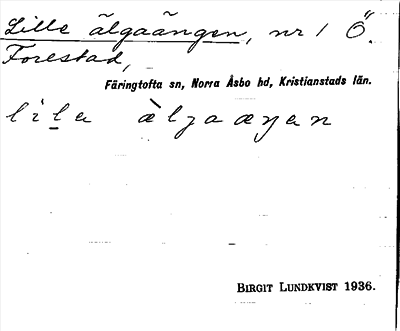 Lille älgaängen, nr 1 Ö.
Forestad,
Färingtofta sn, Norra Åsbo hd, Kristianstads län.
lila ælgaæŋan
BIRGIT LUNDKVIST 1936.